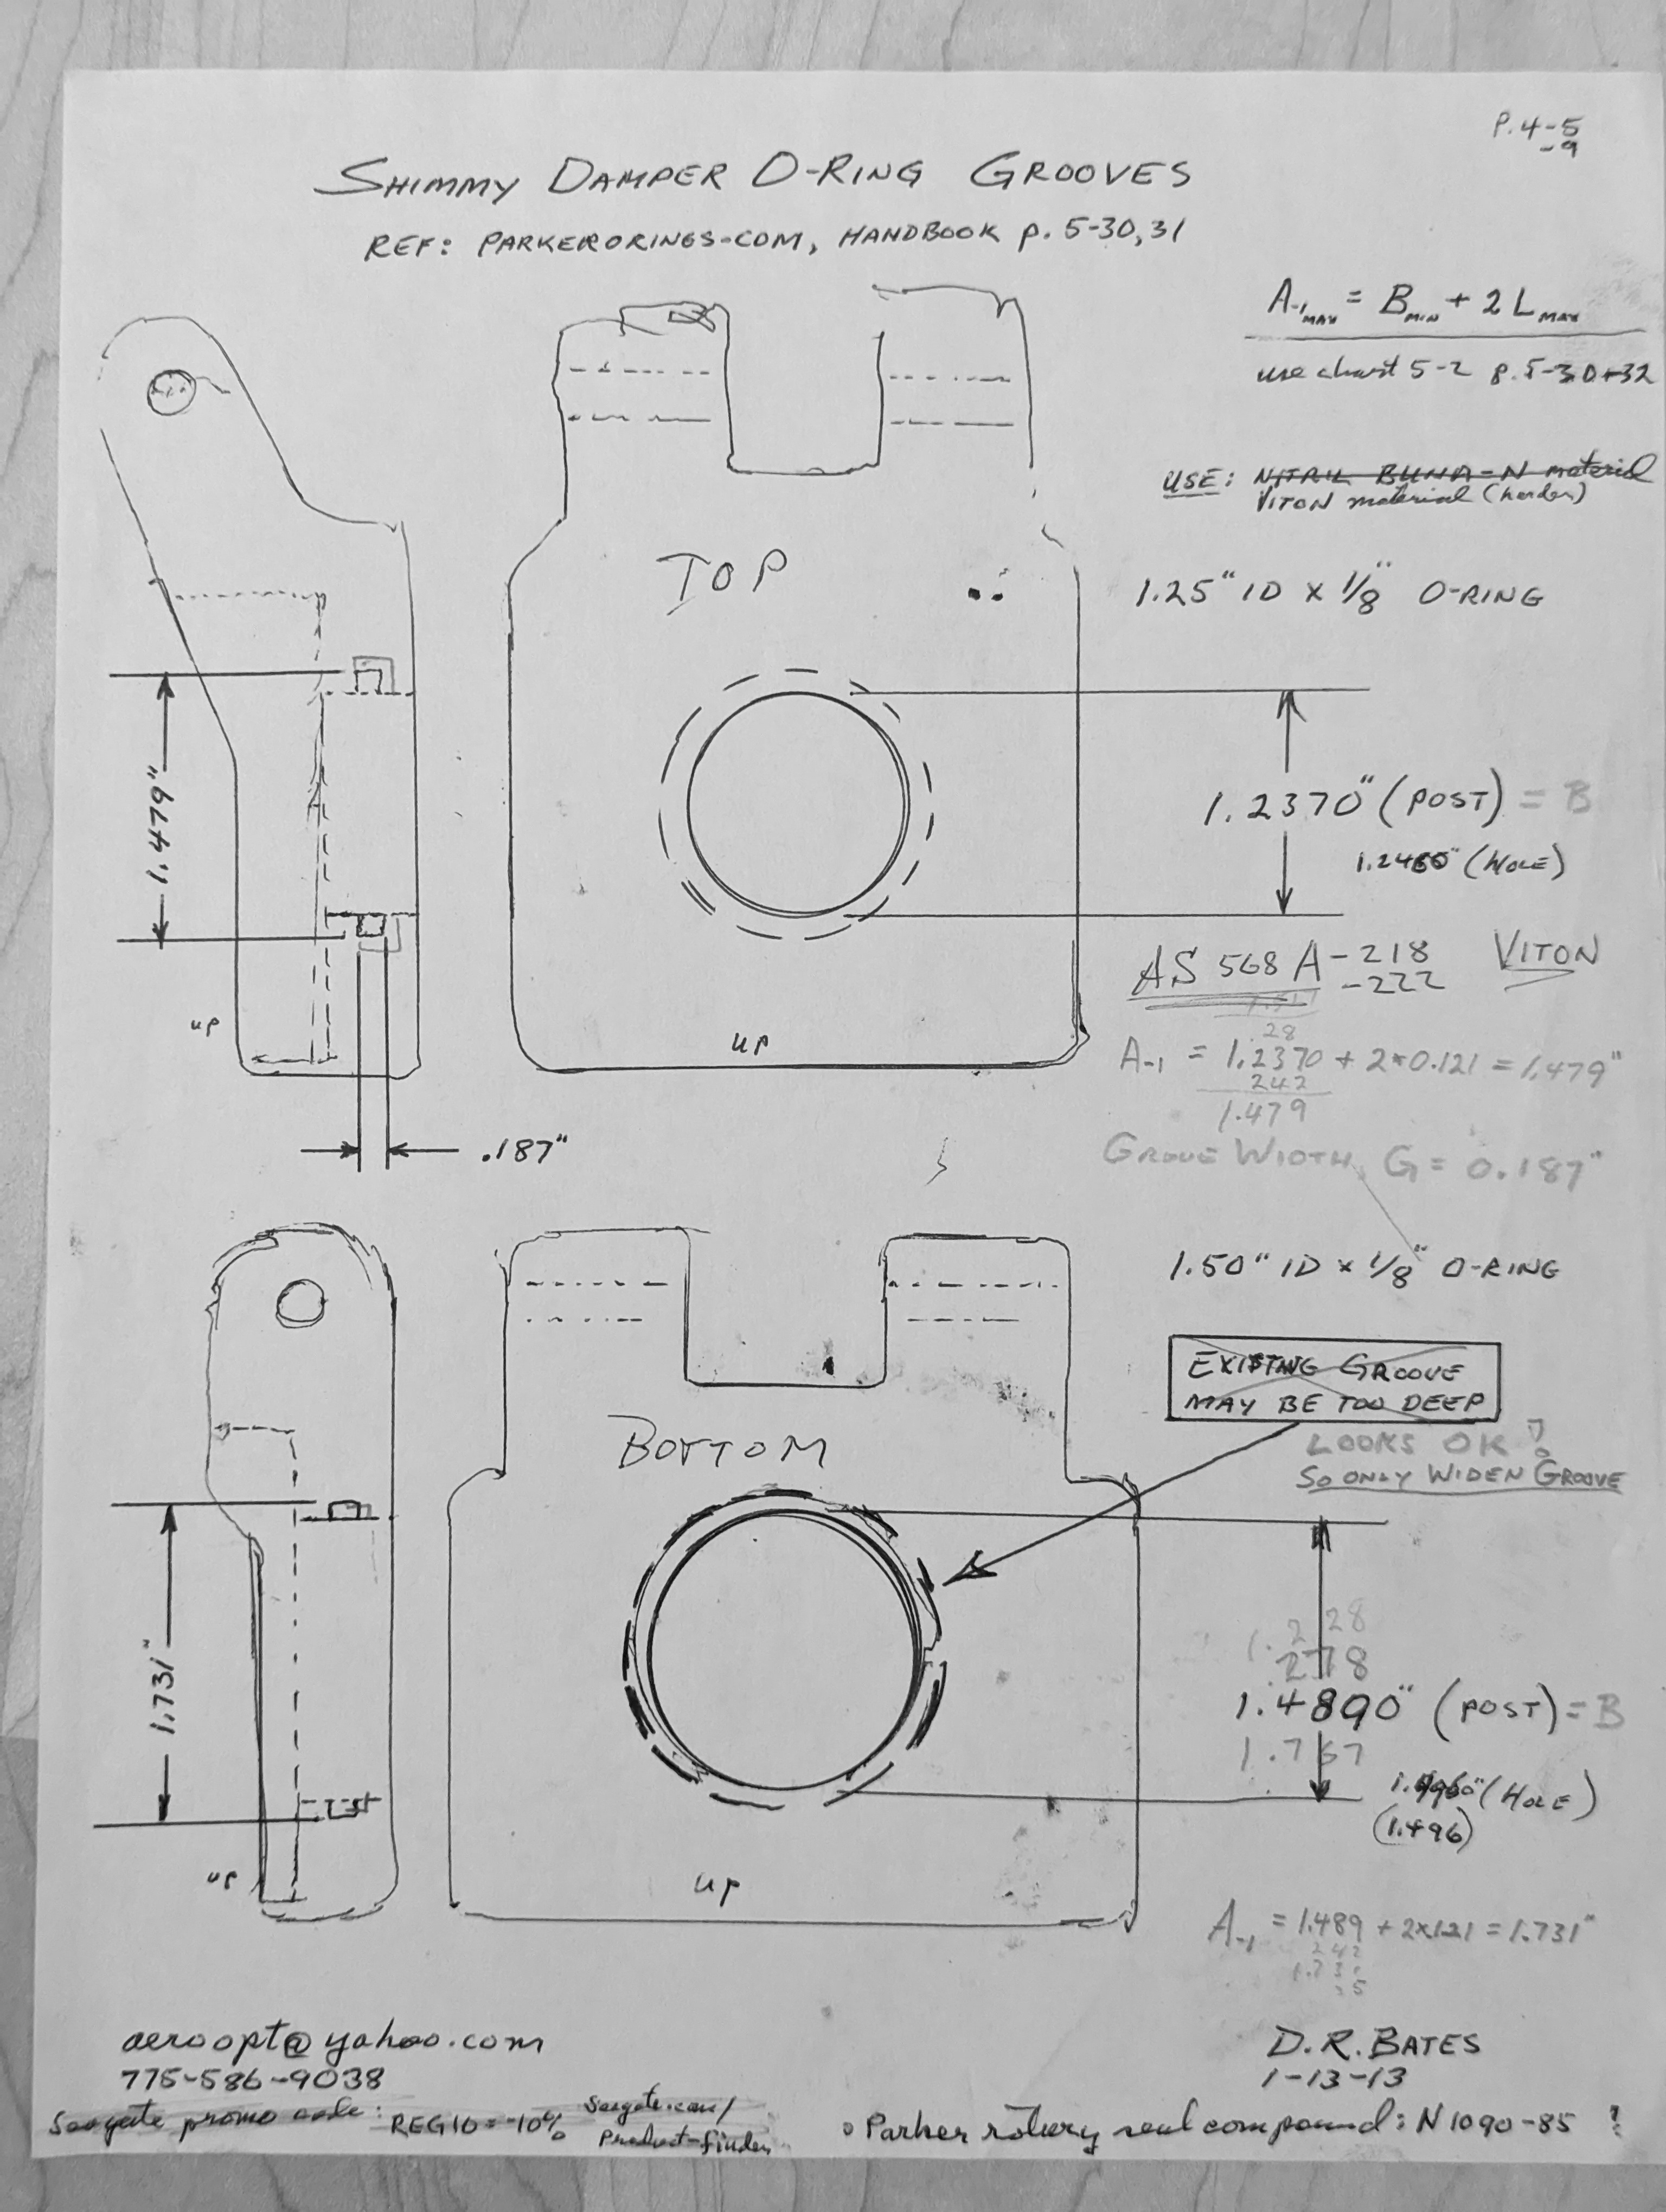 P. 4-5
-9
SHIMMY DAMPER O-RING GROOVES
REF: PARKERORINGS-COM, HANDBOOK p. 5-30,31
A-1MAX = BMIN + 2 LMAX
use chart 5-2 p. 5-30+32
USE: NITRIL BUNA-N material
VITON material (harder)
TOP
1.25" ID X 1/8" O-RING
1.479"
1.2370" (POST) = B
(HOLE)
AS 568A-218 VITON
-222
.28
A-1 = 1.2370 + 2*0.121 = 1.479"
242
1.479
up
up
.187"
GROVE WIDTH, G = 0.187"
1.50" ID x 1/8" O-RING
EXISTING GROOVE
MAY BE TOO DEEP
LOOKS OK
SO ONLY WIDEN GROOVE
BOTTOM
1.731"
1.228
278
1.4890" (POST) = B
1.767
(HOLE)
(1.496)
up
up
A-1 = 1.489 + 2x121 = 1.731"
242
aeroopt@yahoo.com
775-586-9038
D.R. BATES
1-13-13
Seagate promo code: REG10 = -10% Seagate.com/
Product-finder
o Parker rotary seal compound: N1090-85 ?